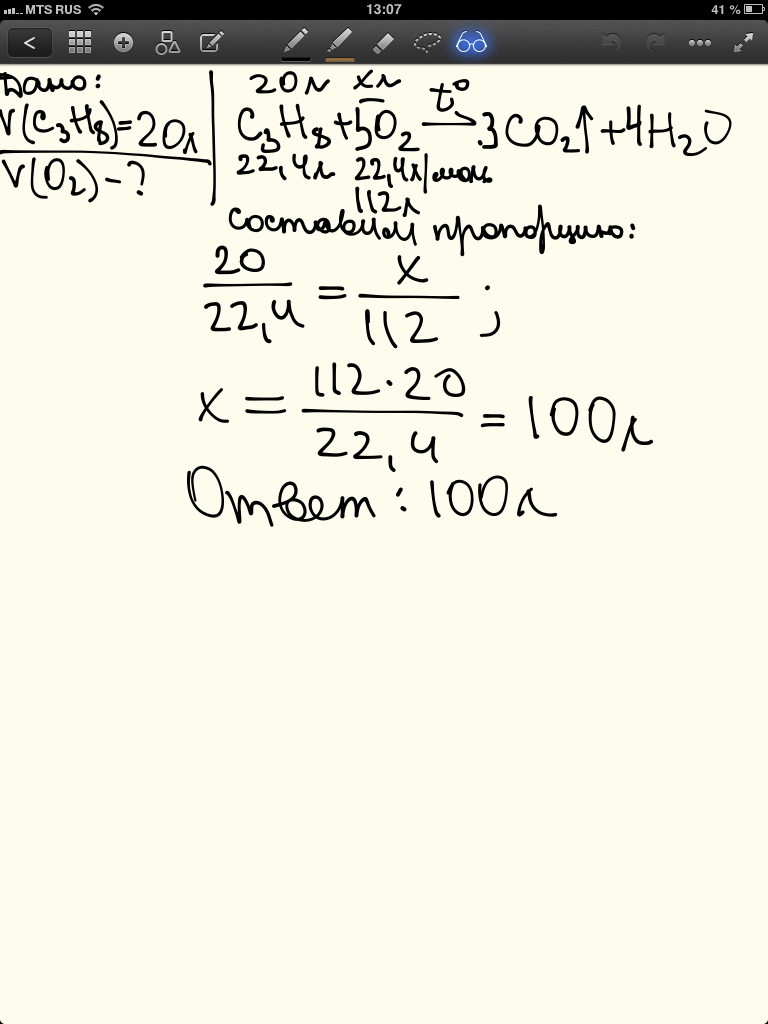 MTS RUS 13:07 41 %
Дано:
V(C₃H₈)=20л
V(O₂)-?
20л хл
C₃H₈+5O₂ t° → 3CO₂↑+4H₂O
22,4л 22,4л/моль
112л
составим пропорцию:
20/22,4 = x/112 ;
x = 112·20/22,4 = 100л
Ответ: 100л